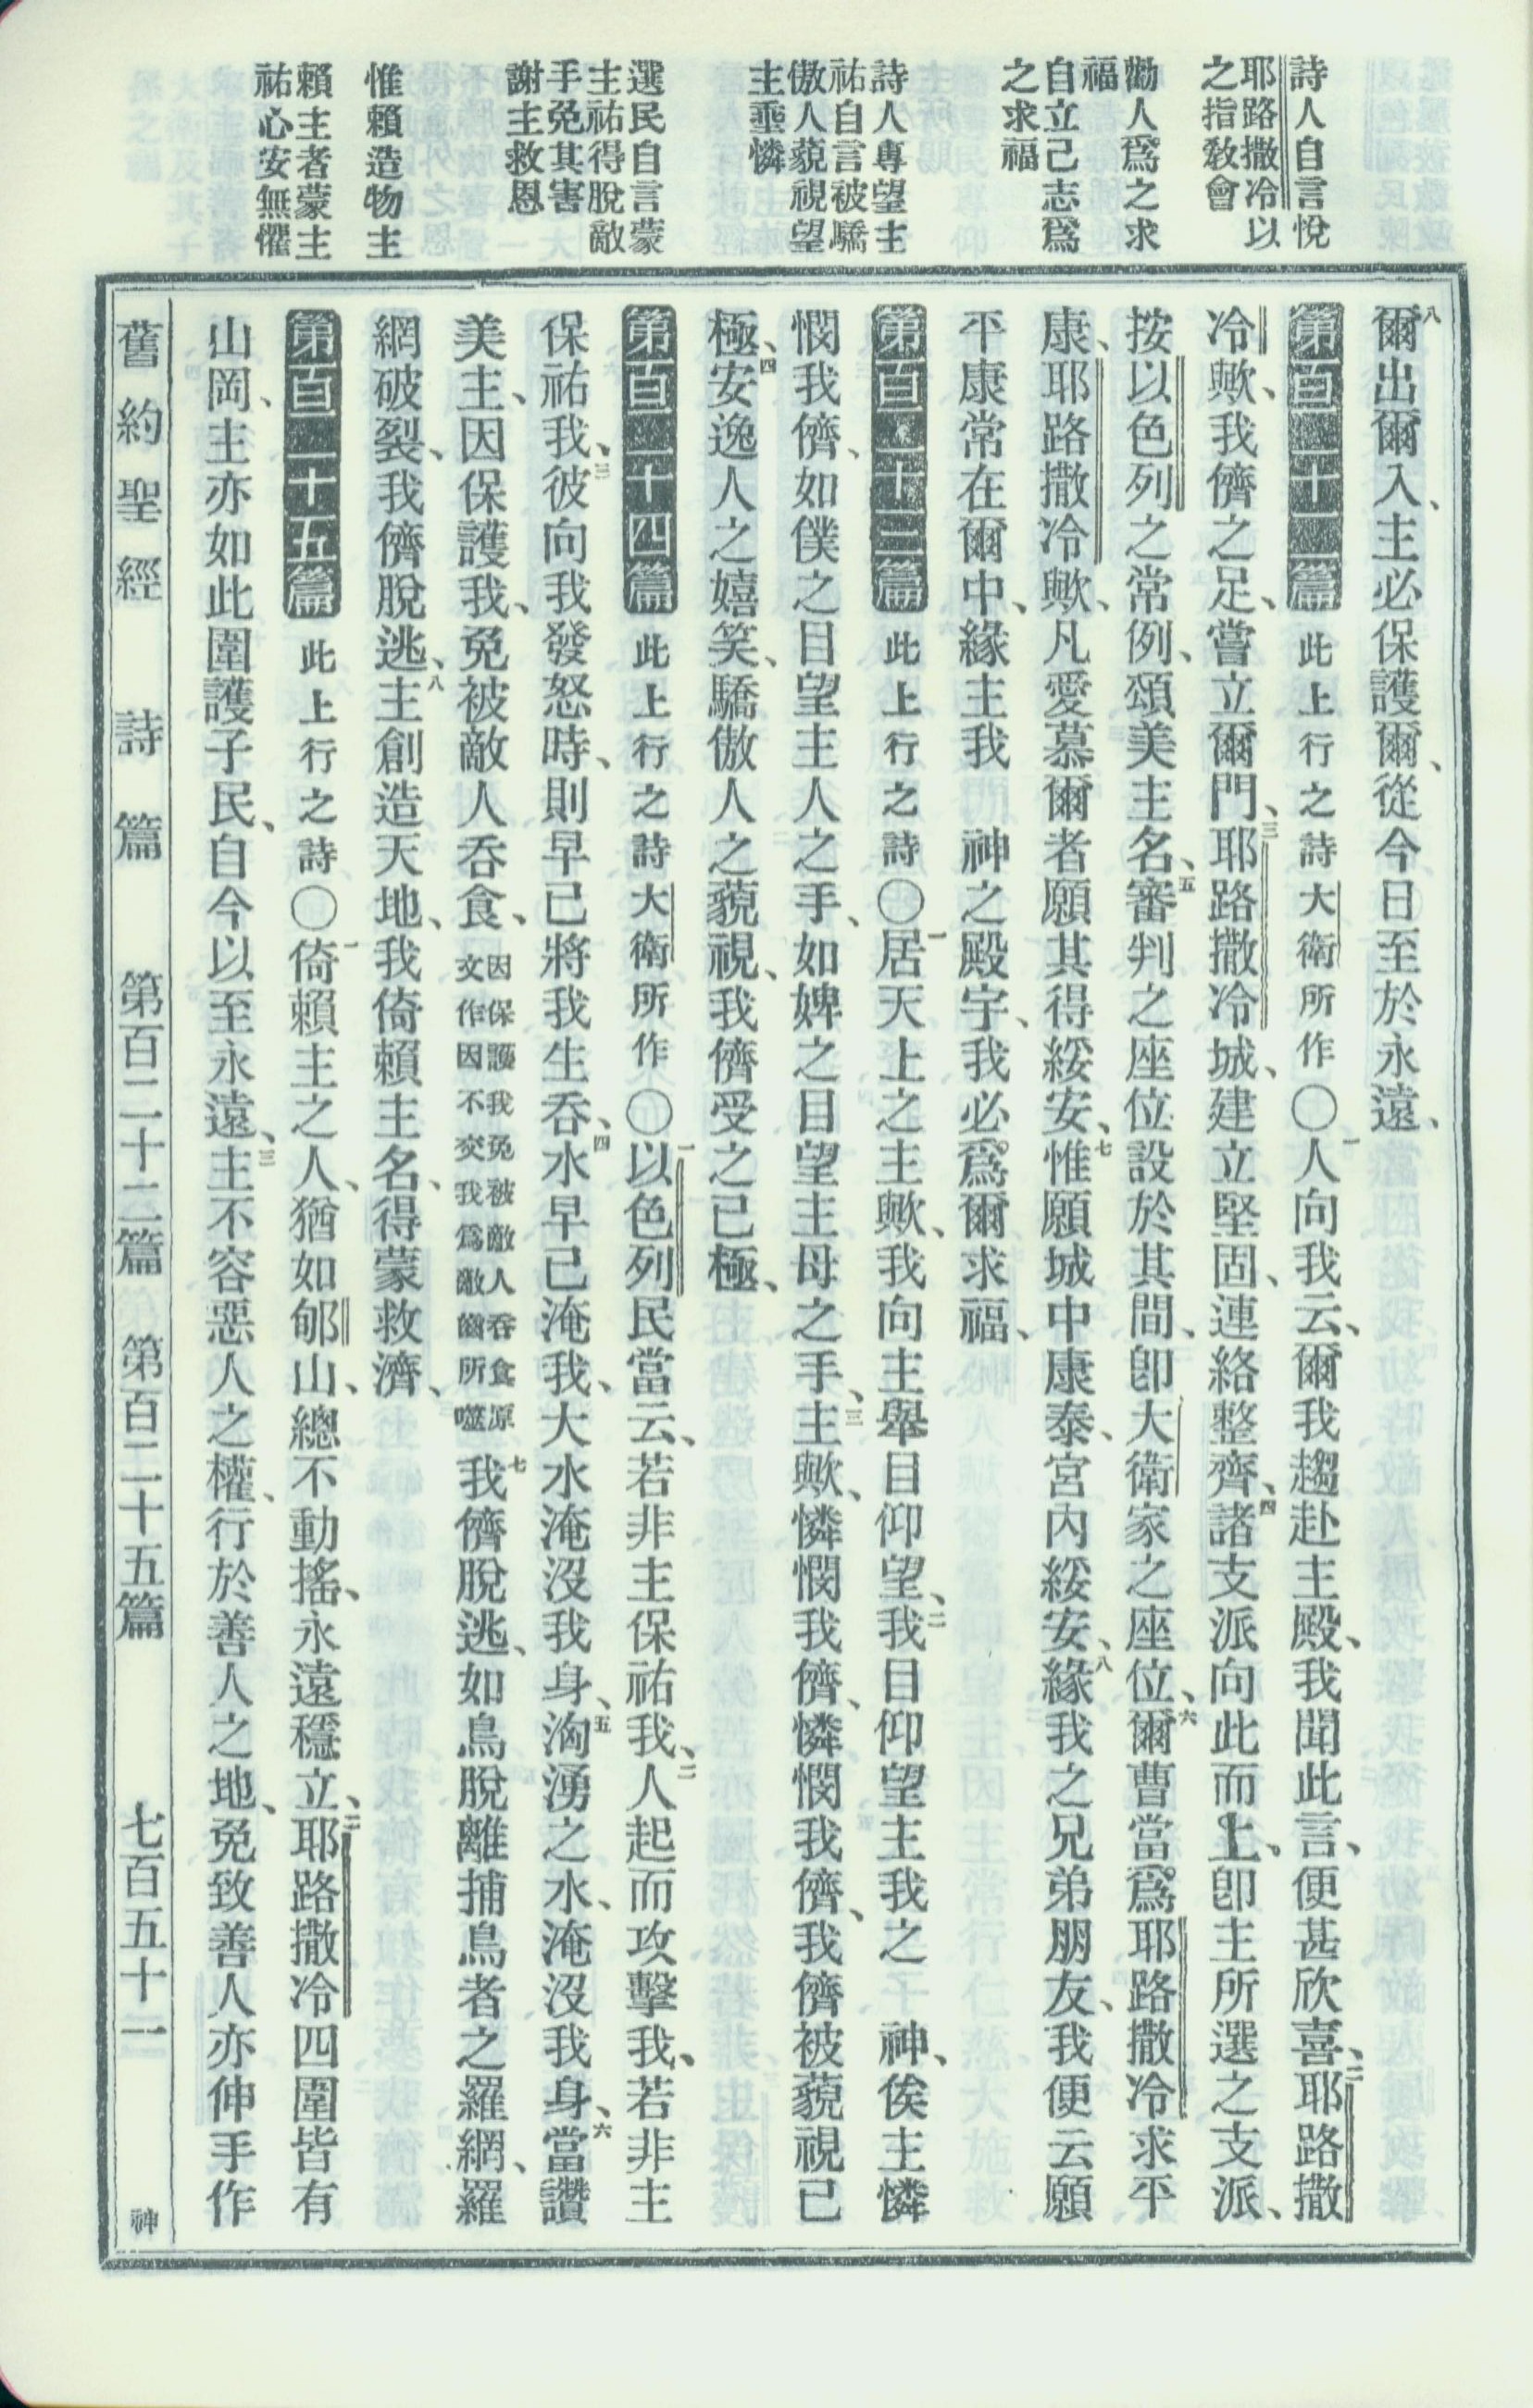 詩人自言悅
耶路撒冷以
之指敎會
勸人爲之求
福
自立己志爲
之求福
詩人專望主
祐自言被驕
傲人藐視望
主垂憐
選民自言蒙
主祐得脫敵
手免其害
謝主救恩
惟賴造物主
賴主者蒙主
祐心安無懼
八爾出爾入、主必保護爾、從今日至於永遠、
第百二十二篇 此上行之詩大衛所作〇一人向我云、爾我趨赴主殿、我聞此言、便甚欣喜、二耶路撒
冷歟、我儕之足、嘗立爾門、三耶路撒冷城、建立堅固、連絡整齊、四諸支派向此而上、卽主所選之支派、
按以色列之常例、頌美主名、五審判之座位設於其間、卽大衛家之座位、六爾曹當爲耶路撒冷求平
康、耶路撒冷歟、凡愛慕爾者願其得綏安、七惟願城中康泰、宮內綏安、八緣我之兄弟朋友、我便云願
平康常在爾中、緣主我　神之殿宇、我必爲爾求福、
第百二十三篇 此上行之詩〇一居天上之主歟、我向主舉目仰望、二我目仰望主我之　神、俟主憐
憫我儕、如僕之目望主人之手、如婢之目望主母之手、三主歟、憐憫我儕、憐憫我儕、我儕被藐視已
極、四安逸人之嬉笑、驕傲人之藐視、我儕受之已極、
第百二十四篇 此上行之詩大衛所作〇一以色列民當云、若非主保祐我、二人起而攻擊我、若非主
保祐我、三彼向我發怒時、則早已將我生呑、四水早已淹我、大水淹沒我身、五洶湧之水、淹沒我身、六當讚
美主、因保護我、免被敵人呑食、因保護我免被敵人呑食原文作因不交我爲敵齒所噬七我儕脫逃、如鳥脫離捕鳥者之羅網、羅
網破裂、我儕脫逃、八主創造天地、我倚賴主名、得蒙救濟、
第百二十五篇 此上行之詩〇一倚賴主之人、猶如郇山、總不動搖、永遠穩立、二耶路撒冷四圍皆有
山岡、主亦如此圍護子民、自今以至永遠、三主不容惡人之權、行於善人之地、免致善人亦伸手作
舊約聖經　詩篇　第百二十二篇　第百二十五篇　七百五十一　神